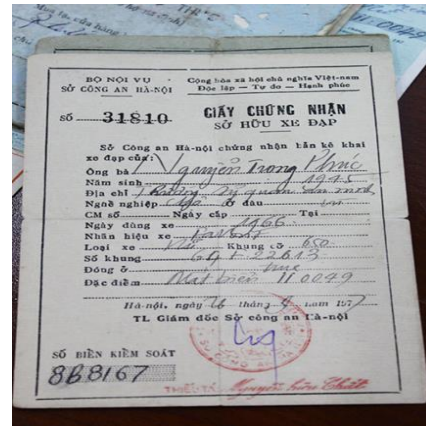 BỘ NỘI VỤ
SỞ CÔNG AN HÀ-NỘI
Cộng hòa xã hội chủ nghĩa Việt-nam
Độc lập — Tự do — Hạnh phúc
SỐ 31810
GIẤY CHỨNG NHẬN
SỞ HỮU XE ĐẠP
Sở Công an Hà-nội chứng nhận bản kê khai
xe đạp của:
Ông bà Nguyễn Trọng Phúc
Năm sinh 1945
Địa chỉ
Nghề nghiệp Ở đâu
CM số Ngày cấp Tại
Ngày dùng xe 1966
Nhãn hiệu xe Favorit
Loại xe Nữ Khung cỡ 650
Số khung 22613
Đóng ở
Đặc điểm Mất biển H 0049
Hà-nội, ngày 26 tháng năm 1977
TL Giám đốc Sở công an Hà-nội
SỐ BIỂN KIỂM SOÁT
8B8167
THIẾU-TÁ: Nguyễn Hữu Chất
H 0049